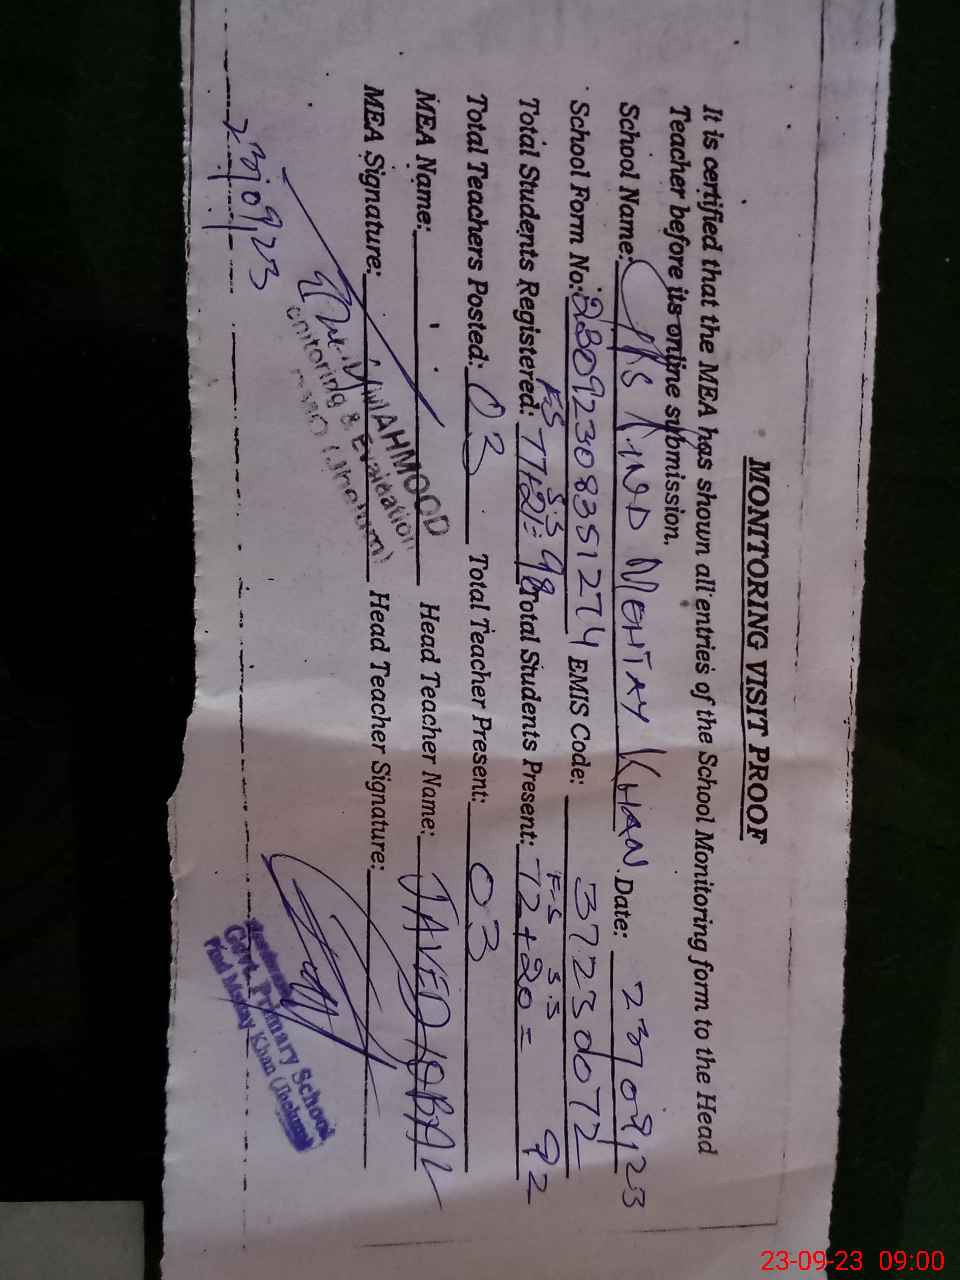 MONITORING VISIT PROOF
It is certified that the MEA has shown all entries of the School Monitoring form to the Head
Teacher before its online submission.
School Name: MEHTAY KHAN. Date: 23/09/23
School Form No: 23092308351274 EMIS Code: 37230072
F.S S.S F.S S.S
Total Students Registered: 77+21= 98 Total Students Present: 72+20= 92
Total Teachers Posted: 03 Total Teacher Present: 03
MEA Name: Head Teacher Name: JAVED IQBAL
MEA Signature: Head Teacher Signature:
MAHMOOD
Monitoring & Evaluation
(Jhelum)
23/09/23
Govt. Primary School
Pind Mehtay Khan (Jhelum)
23-09-23 09:00